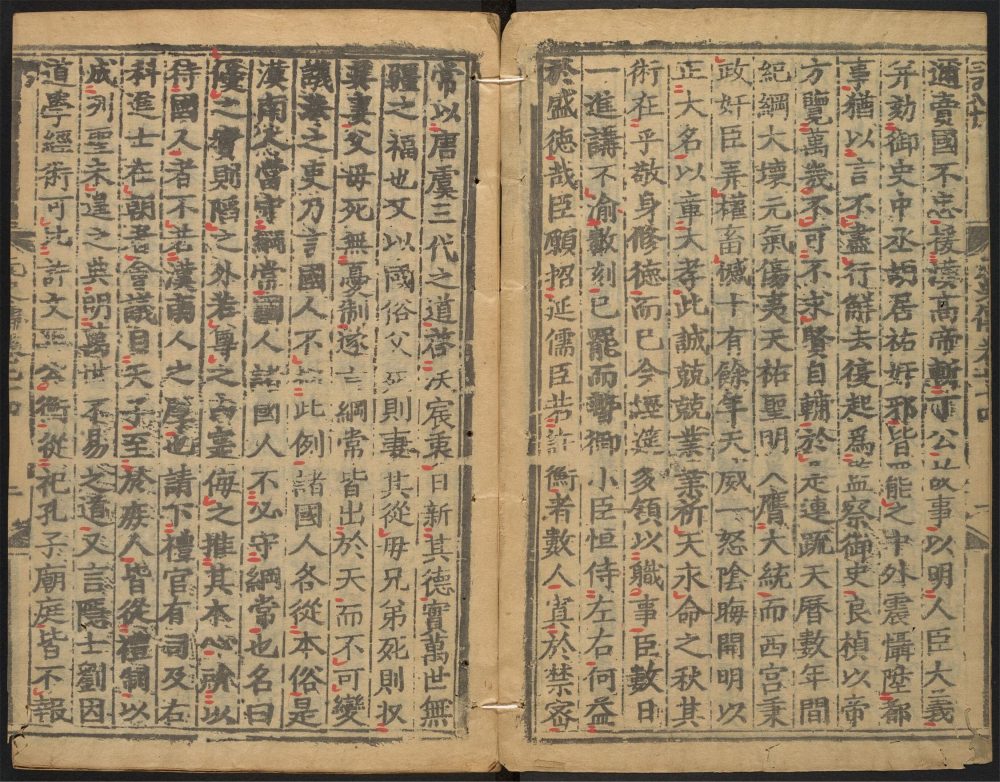 邇賣國不忠援漢高帝斬丁公故事以明人臣大義
并劾御史中丞胡居祐奸邪皆罷之中外震懾陞都
事猶以言不盡行解去復起爲監察御史良楨以帝
方覽萬幾不可不求賢自輔於是連疏天曆數年間
紀綱大壞元氣傷夷天祐聖明入膺大統而西宮秉
政奸臣弄權畜憾十有餘年天威一怒陰晦開明以
正大名以章大孝此誠兢兢業業祈天永命之秋其
術在乎敬身修德而已今經筵多領以職事臣數日
一進講不渝數刻已罷而暬御小臣恒侍左右何益
於盛德哉臣願招延儒臣若許衡者數人寘於禁密
常以唐虞三代之道啓沃宸衷日新其德實萬世無
疆之福也又以國俗父死則妻其從母兄弟死則收
其妻父母死無憂制遂言綱常皆出於天而不可變
議法之吏乃言國人不拘此例諸國人各從本俗是
漢南人當守綱常國人諸國人不必守綱常也名曰
優之實則陷之外若尊之內實侮之推其本心所以
待國人者不若漢南人之厚也請下禮官有司及右
科進士在朝者會議自天子至於庶人皆從禮制以
成列聖未遑之典明萬世不易之道又言隱士劉因
道學經術可比許文正公衡從祀孔子廟庭皆不報